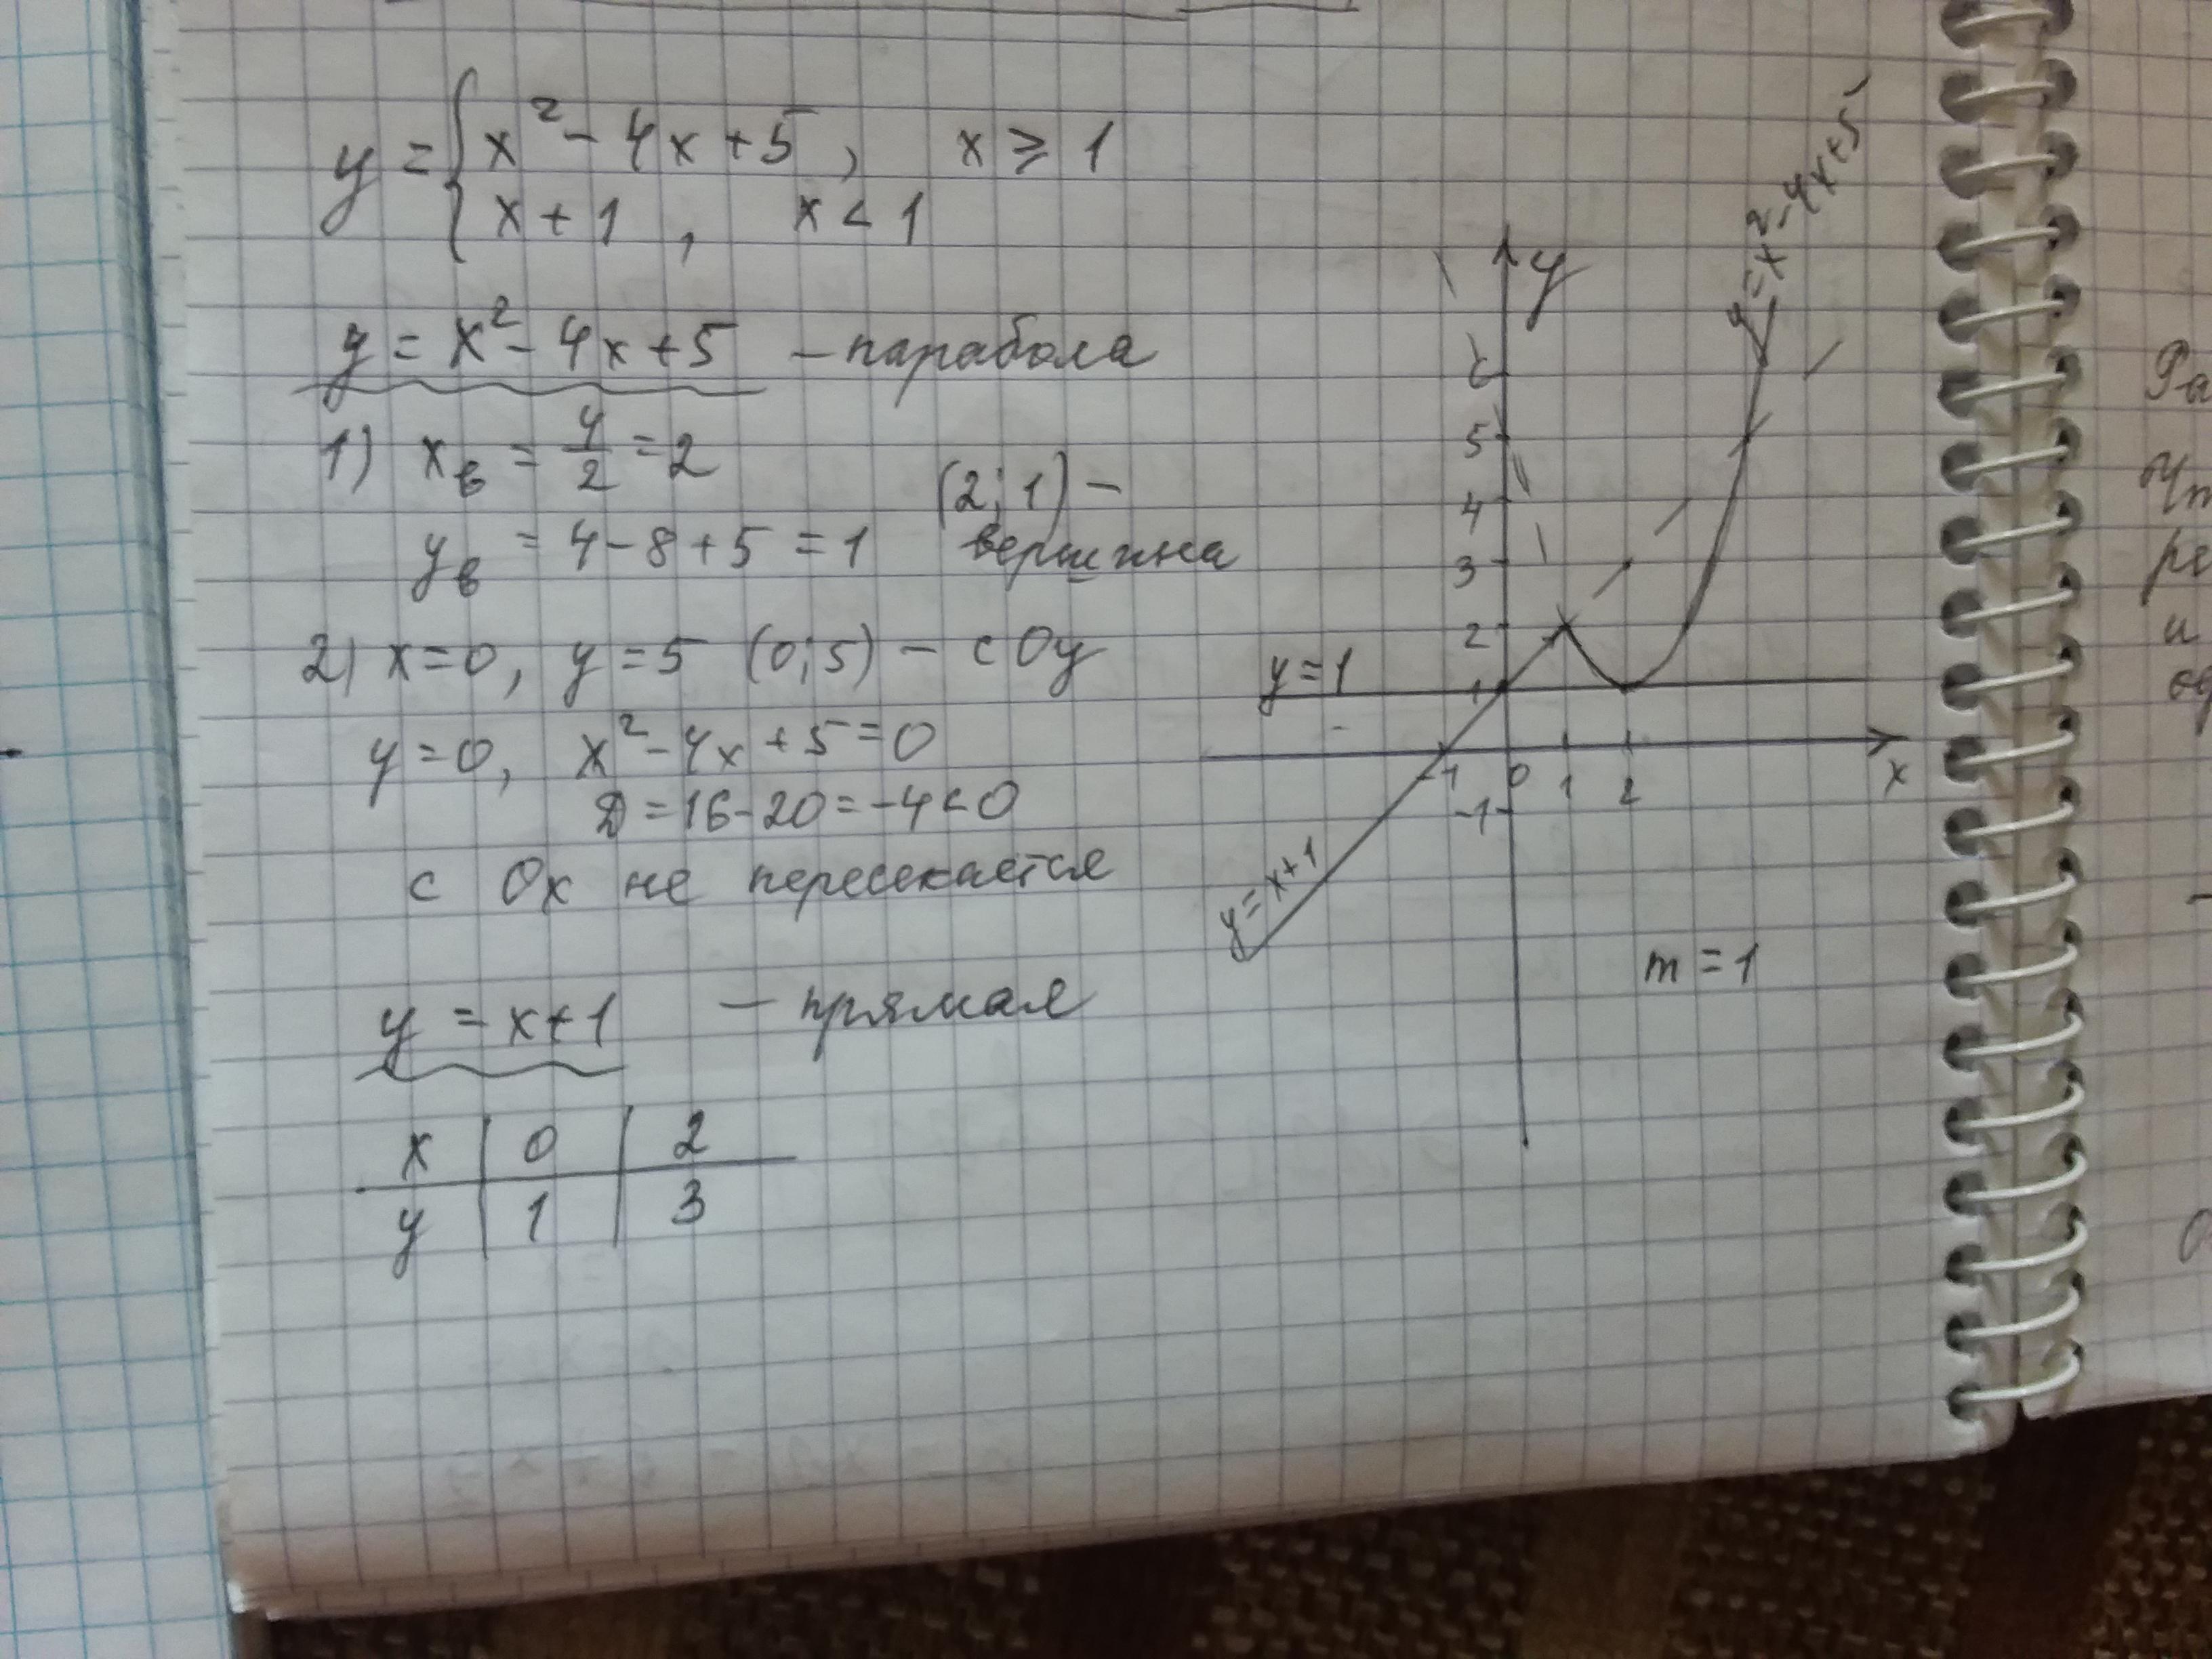 y = { x² - 4x + 5 ,    x ≥ 1
x + 1 ,    x < 1
y = x² - 4x + 5 – парабола
1) xв = 4/2 = 2
yв = 4 - 8 + 5 = 1
(2; 1) –
вершина
2) x = 0, y = 5 (0; 5) – с Oy
y = 0, x² - 4x + 5 = 0
D = 16 - 20 = -4 < 0
с Ox не пересекается
y = x + 1 – прямая
x | 0 | 2
y | 1 | 3
y
y = x² - 4x + 5
5
4
3
2
1
y = 1
-1 0 1 2 x
-1
y = x + 1
m = 1